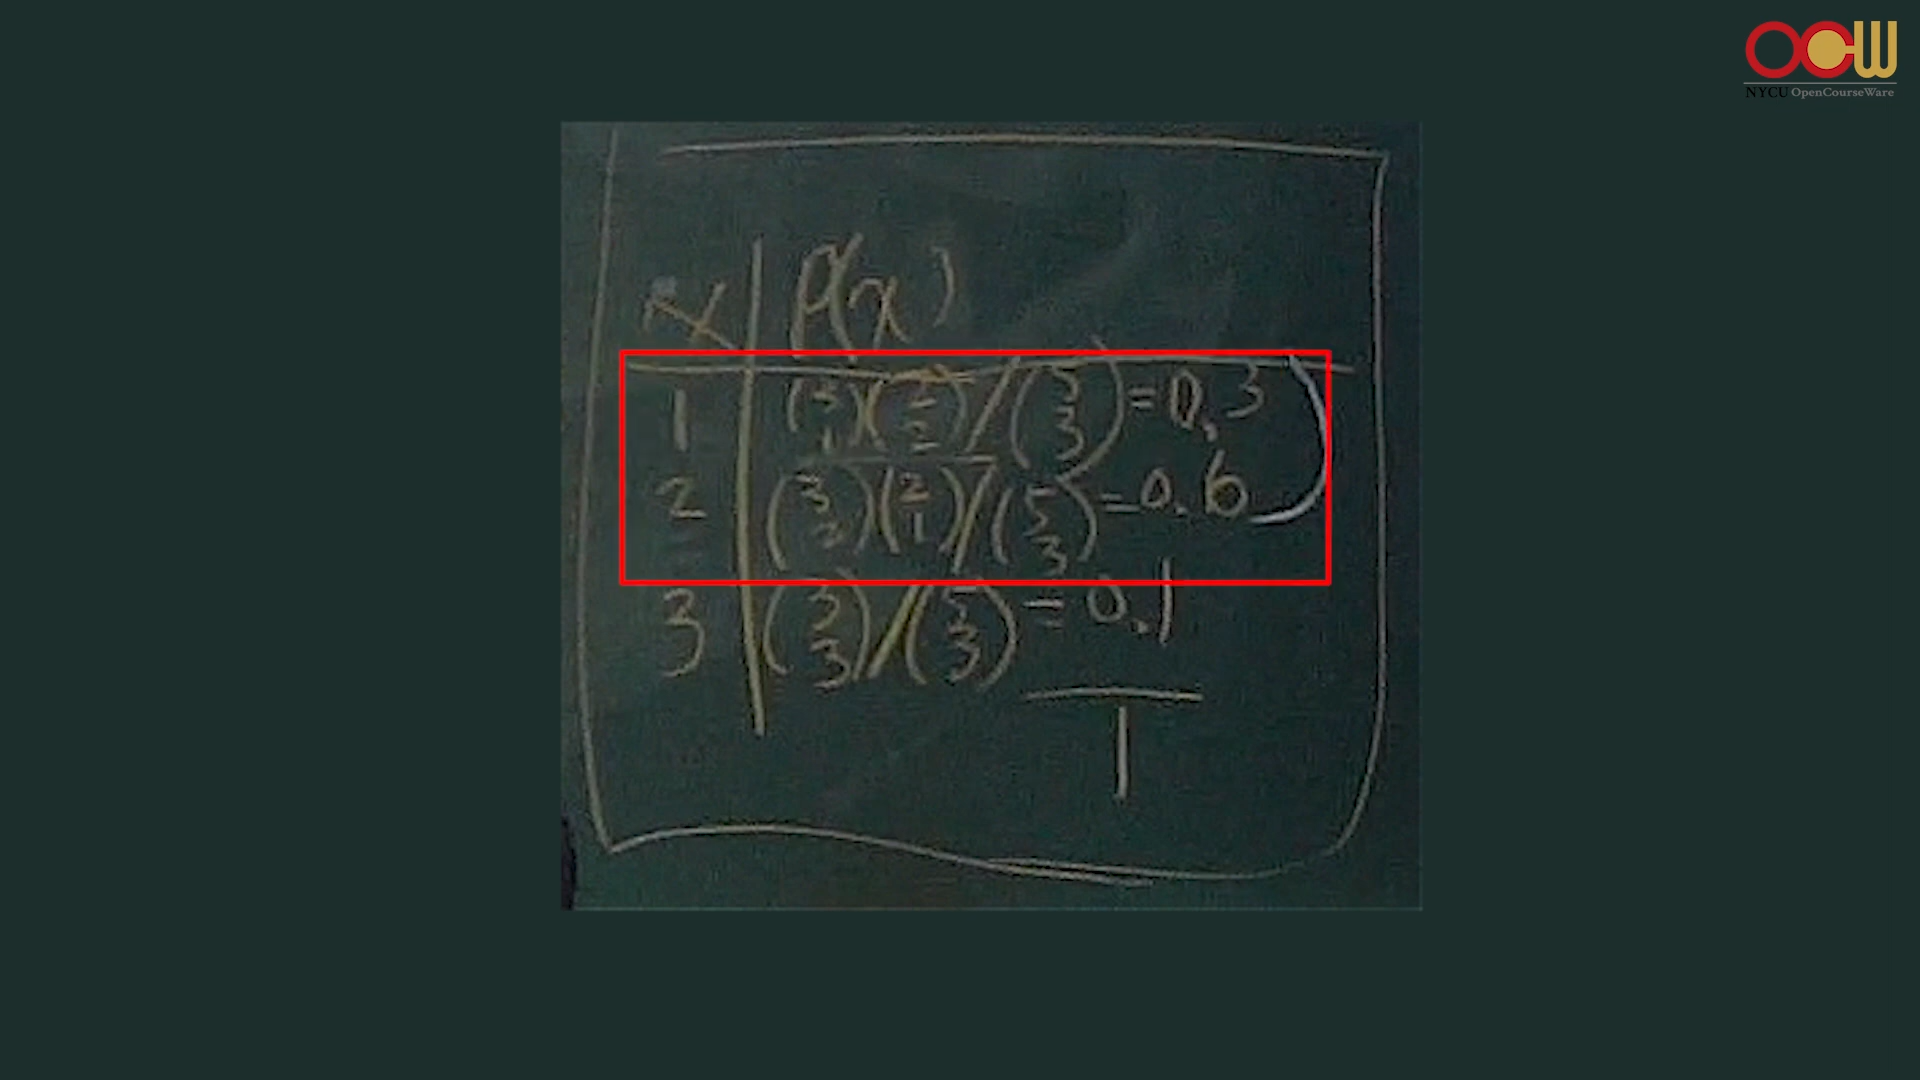 OCW
NYCU OpenCourseWare
X P(x)
1 (3 1)(2 2)/(5 3)=0.3
2 (3 2)(2 1)/(5 3)=0.6
3 (3 3)/(5 3)=0.1
1